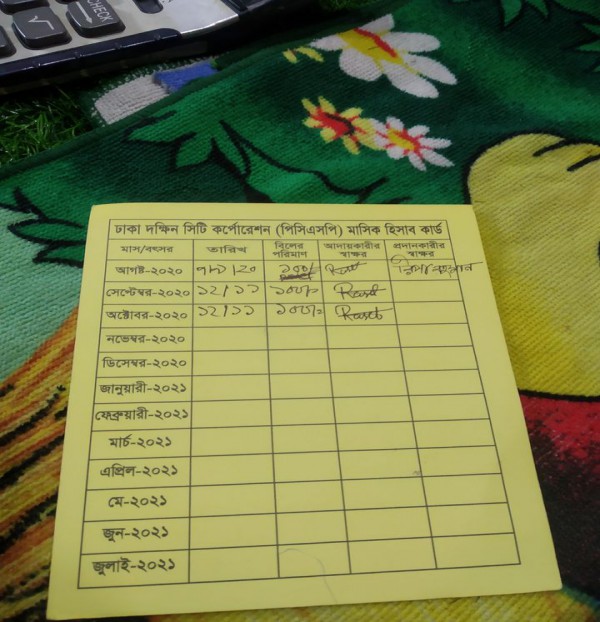 CHECK
√
ঢাকা দক্ষিন সিটি কর্পোরেশন (পিসিএসপি) মাসিক হিসাব কার্ড
মাস/বৎসর তারিখ বিলের পরিমাণ আদায়কারীর স্বাক্ষর প্রদানকারীর স্বাক্ষর
আগষ্ট-২০২০ ১০০/
সেপ্টেম্বর-২০২০ ১২/১১ ১০০/=
অক্টোবর-২০২০ ১২/১১ ১০০/=
নভেম্বর-২০২০
ডিসেম্বর-২০২০
জানুয়ারী-২০২১
ফেব্রুয়ারী-২০২১
মার্চ-২০২১
এপ্রিল-২০২১
মে-২০২১
জুন-২০২১
জুলাই-২০২১